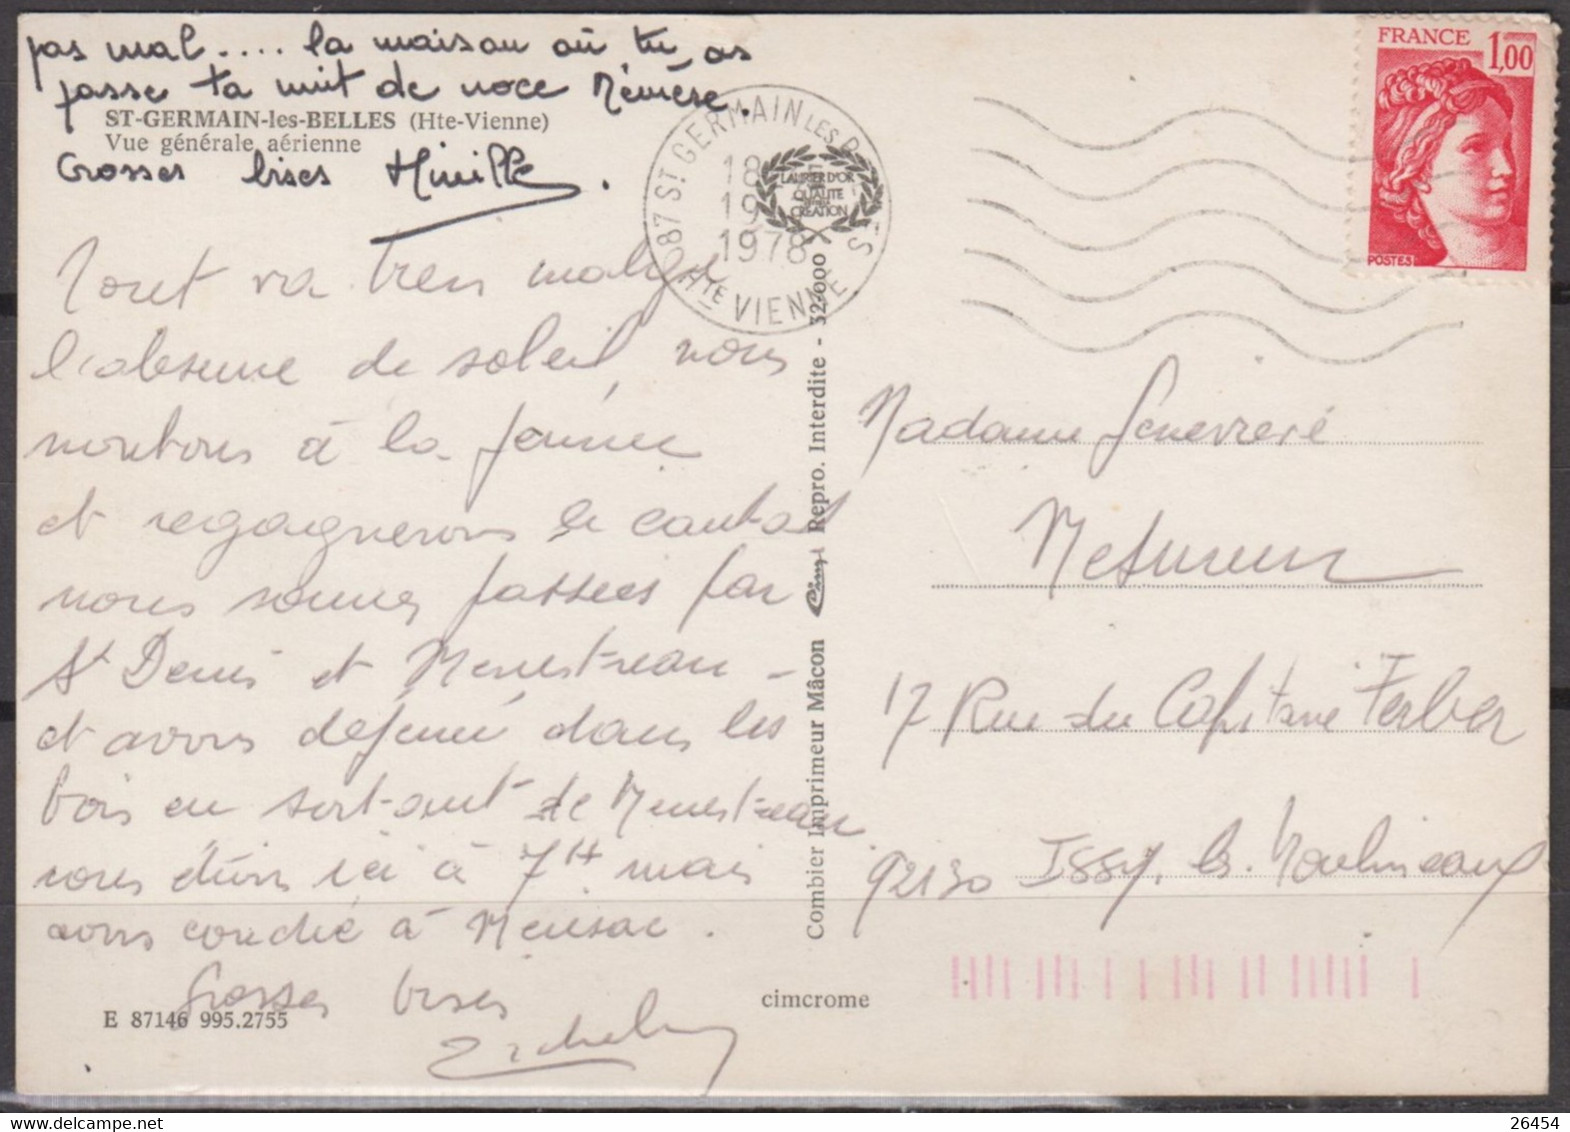 pas mal.... la maison où tu as
passe ta nuit de noce Mémère.
ST-GERMAIN-les-BELLES (Hte-Vienne)
Vue générale aérienne
Grosses bises
Tout va tres malgre
l'absence de soleil, nous
à la
et regagnerons le cantal
nous sommes passées par
St Denis et Menestreau -
et avons dejeuné dans les
bois en sortant de Menestreau
nous ici à 7H mais
avons couché à
Grosses bises
E 87146 995.2755
087 ST GERMAIN LES BELLES
18 H
19
1978
HTE VIENNE
LAURIER D'OR
QUALITE
CREATION
Combier Imprimeur Mâcon Cim Repro. Interdite - 32.000
cimcrome
FRANCE 1,00
POSTES
Madame Genevieve
17 Rue du Capitaine Ferber
92130 Issy. les. Moulineaux
26454